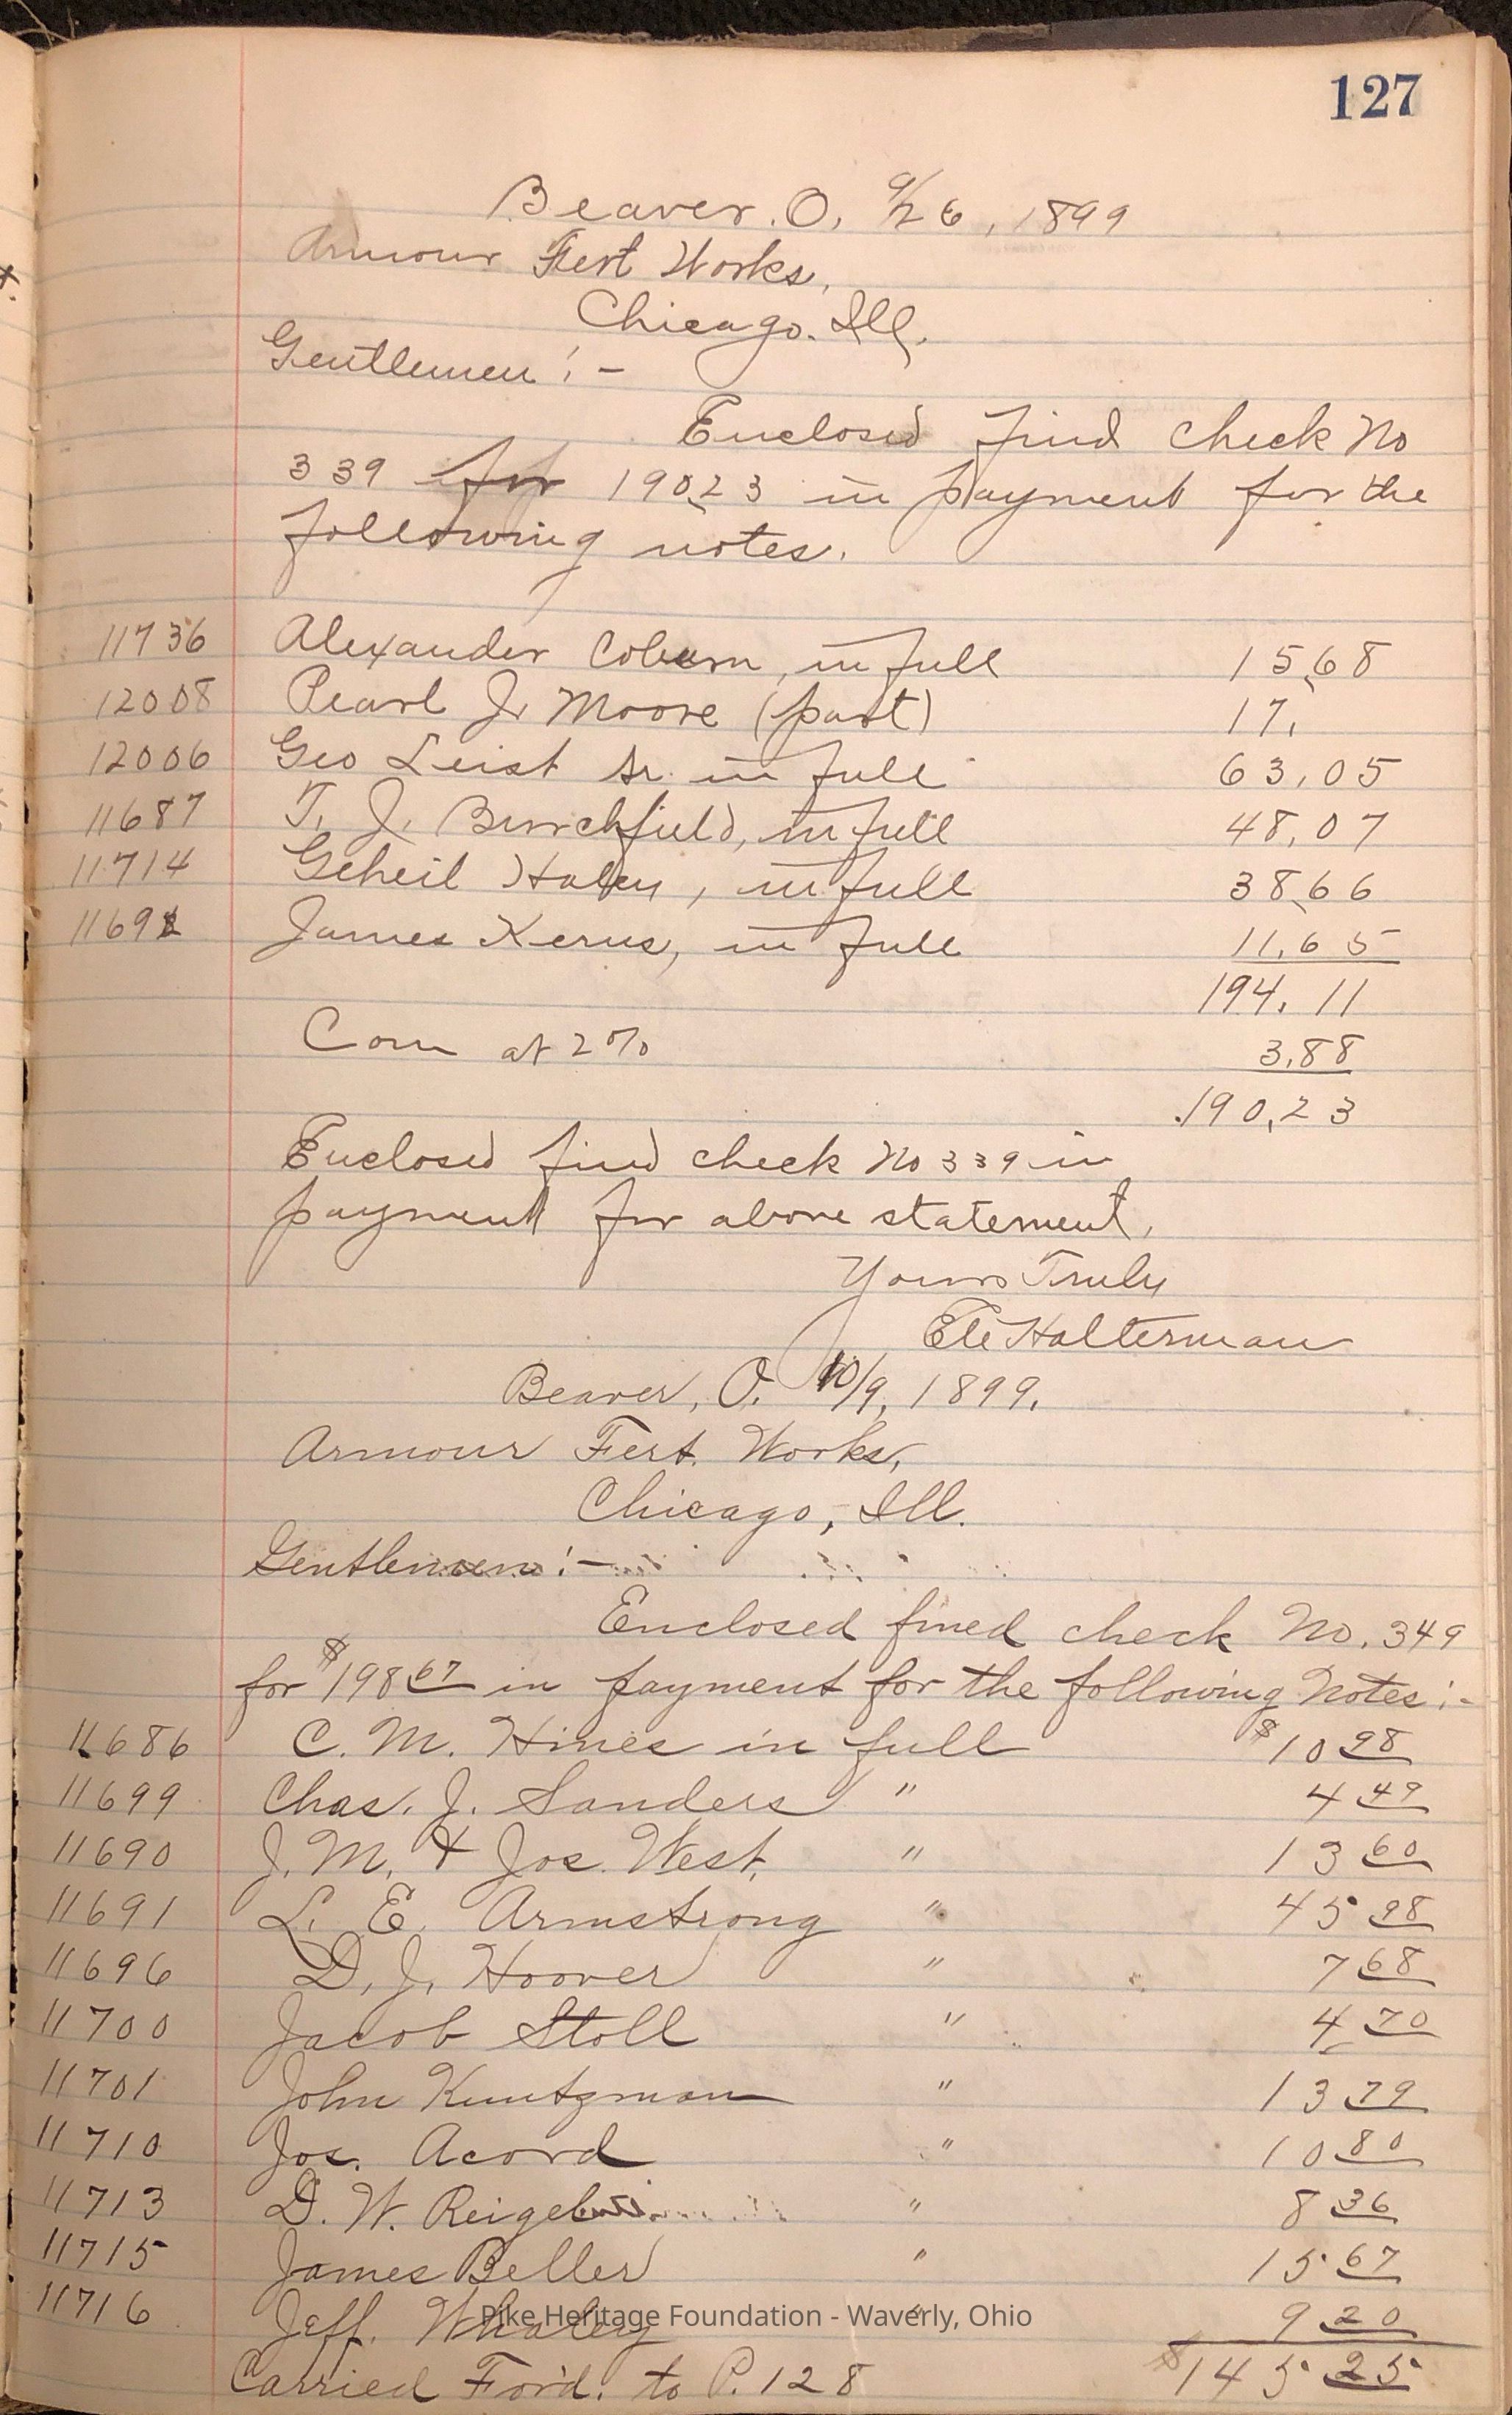 127
Beaver. O, 9/26, 1899
Armour Fert Works,
Chicago. Ill.
Gentlemen! -
Enclosed find check No
339 for 190,23 in payment for the
following notes.
11736 Alexander Coburn, in full 15,68
12008 Pearl J. Moore (part) 17,
12006 Geo Leist Sr. in full 63,05
11687 T. J. Burchfield, in full 48,07
11714 Geheil Haley, in full 38,66
1169 James Kerns, in full 11,65
194. 11
Com at 2% 3,88
190,23
Enclosed find check No 339 in
payment for above statement,
Yours Truly
Ele Halterman
Beaver, O. 10/9, 1899.
Armour Fert. Works,
Chicago, Ill.
Gentlemen! -
Enclosed fined check No. 349
for $198 67 in payment for the following Notes: -
11686 C. M. Hines in full $10 98
11699 Chas. J. Sanders " 4 49
11690 J. M. & Jos. West. " 13 60
11691 L. E. Armstrong " 45 98
11696 D. J. Hoover " 7 68
11700 Jacob Stoll " 4 70
11701 John Kuntzman " 13 79
11710 Jos. Acord " 10 80
11713 D. W. " 8 36
11715 James Beller " 15 67
11716 Jeff. Whaley " 9 20
Pike Heritage Foundation - Waverly, Ohio
Carried For'd. to P. 128 $145 25